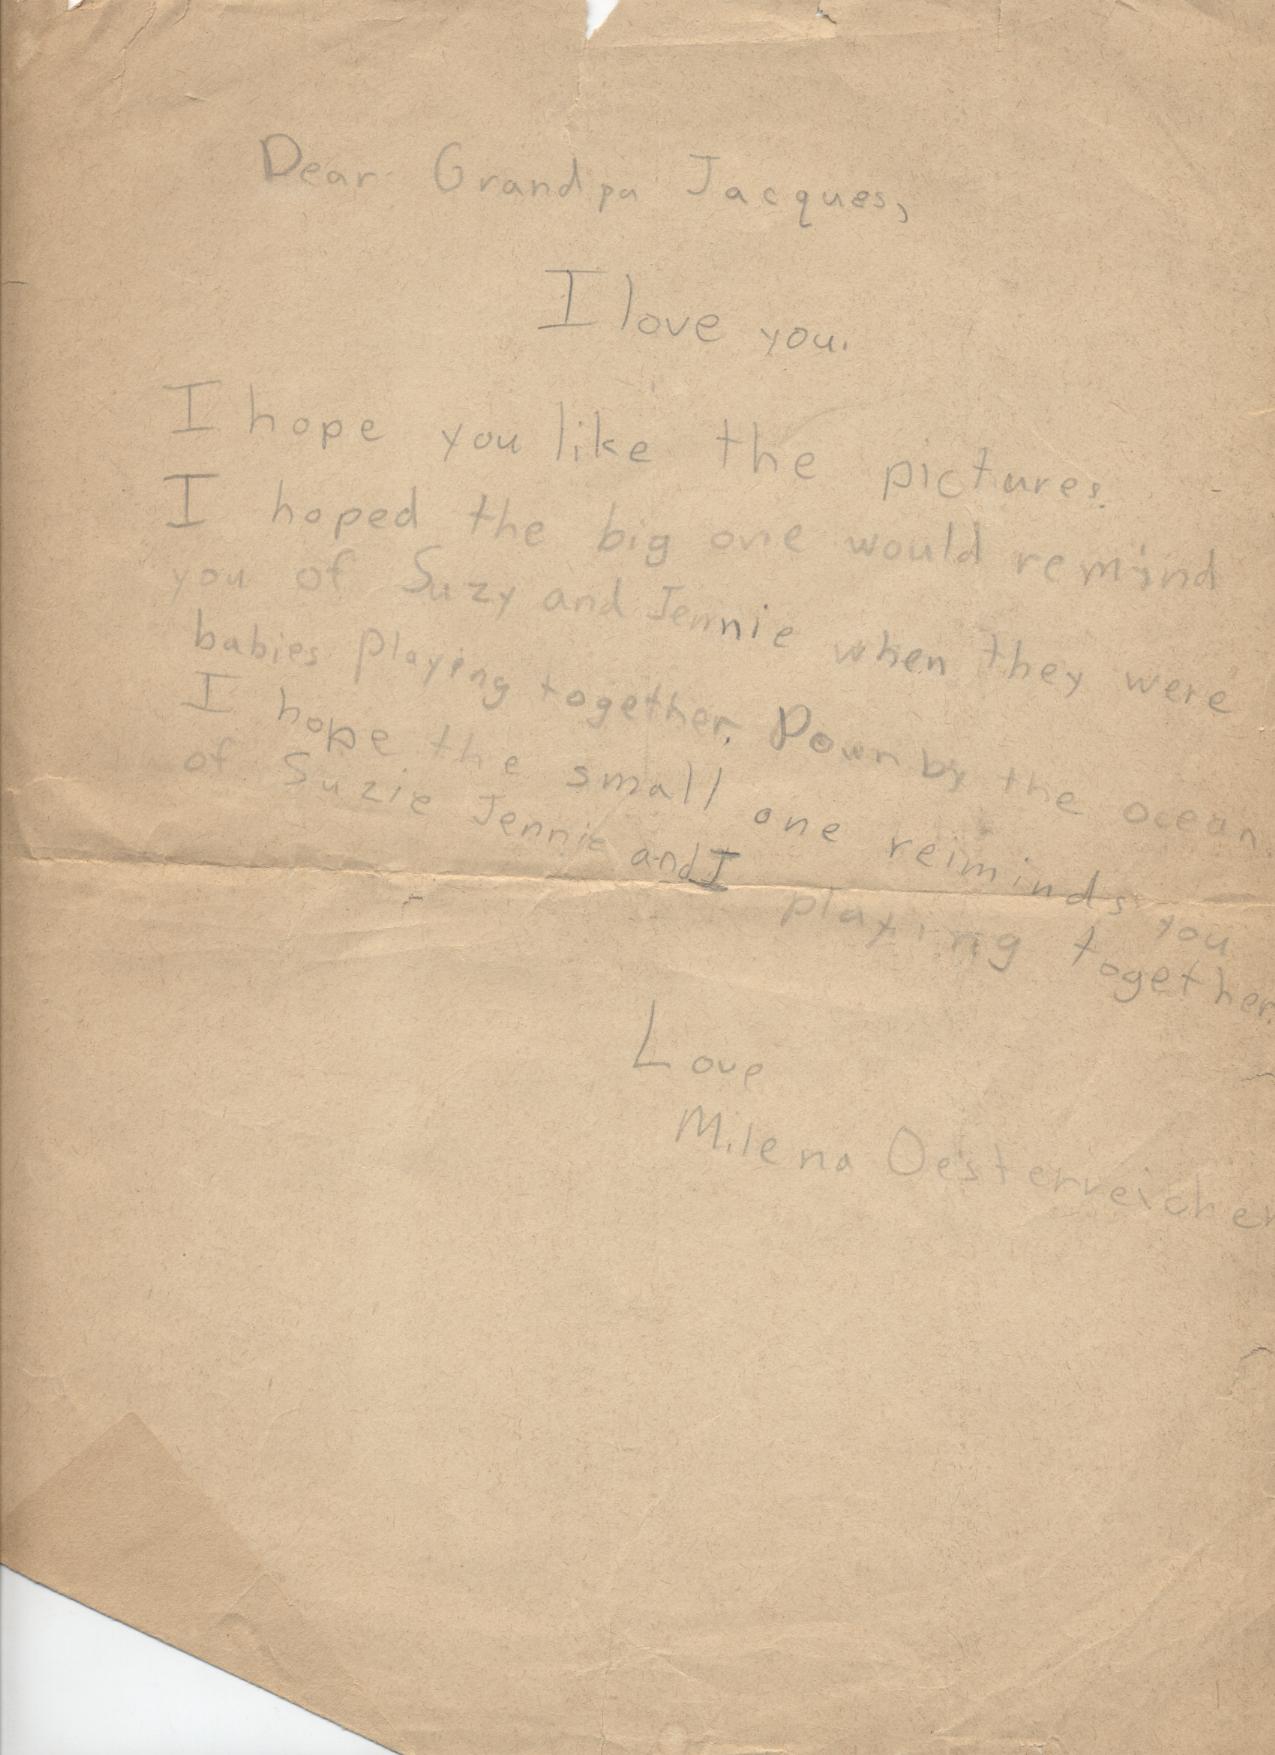 Dear Grandpa Jacques,
I love you.
I hope you like the pictures.
I hoped the big one would remind
you of Suzy and Jennie when they were
babies playing together. Down by the ocean.
I hope the small one reiminds you
of Suzie Jennie and I playing together.
Love
Milena Oesterreicher